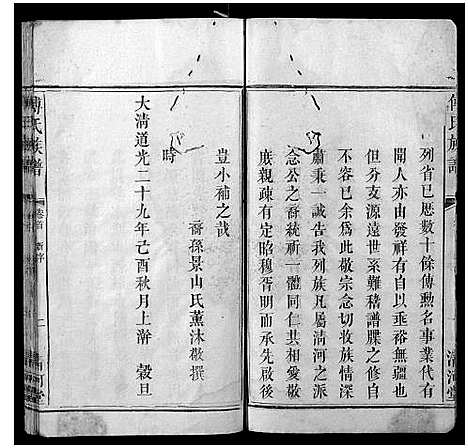 傅氏族譜
列省已厯數十餘傳勲名事業代有
聞人亦由發祥有自以垂裕無疆也
但分支源遠世系難稽譜牒之修刻
不容已余為此敬宗念切收族情深
肅秉一誠告我列族凡屬清河之派
念公之裔統祈一體同仁共襄
庶親疎有定昭穆胥明而承先啟後
清河堂
豈小補之哉
裔孫景山氏薰沐敬撰
時
大清道光二十九年己酉秋月上澣 穀旦
傅氏族譜
卷首
序
清河堂